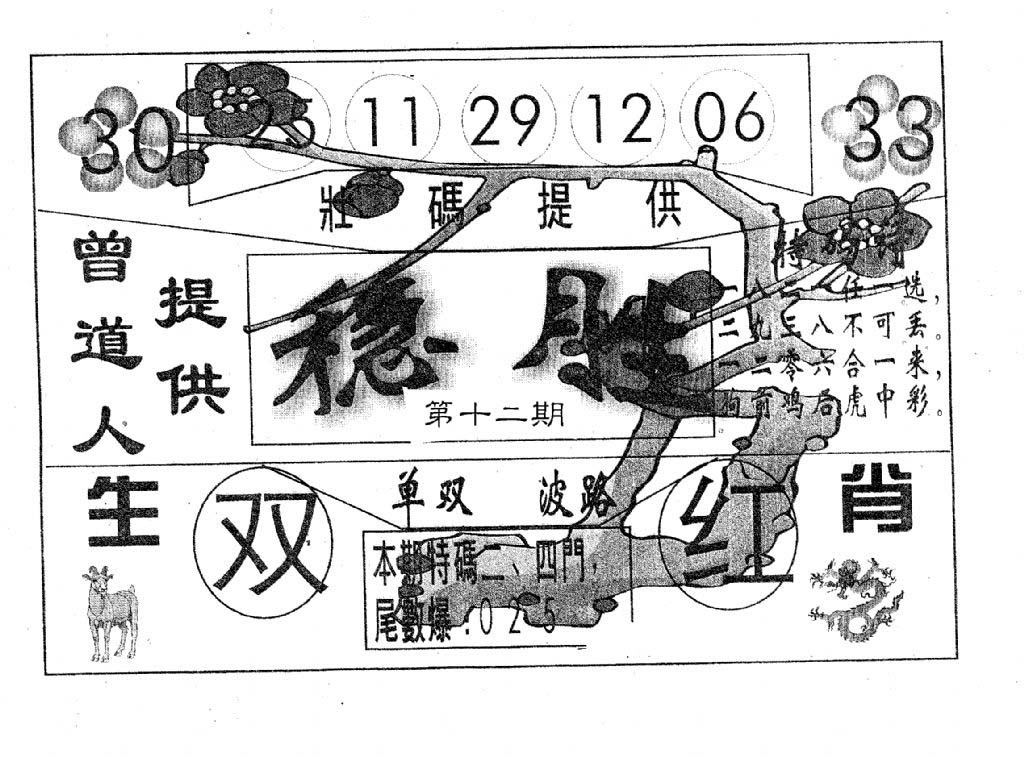 30 25 11 29 12 06 33
壯碼提供
曾道人
提供
稳胜
第十二期
特码诗
一八二八任一选，
二九三八不可丢。
一二零六合一来，
狗前鸡后虎中彩。
生 肖
双
单双 波路
红
本期特碼二、四門，
尾數爆：0 2 5